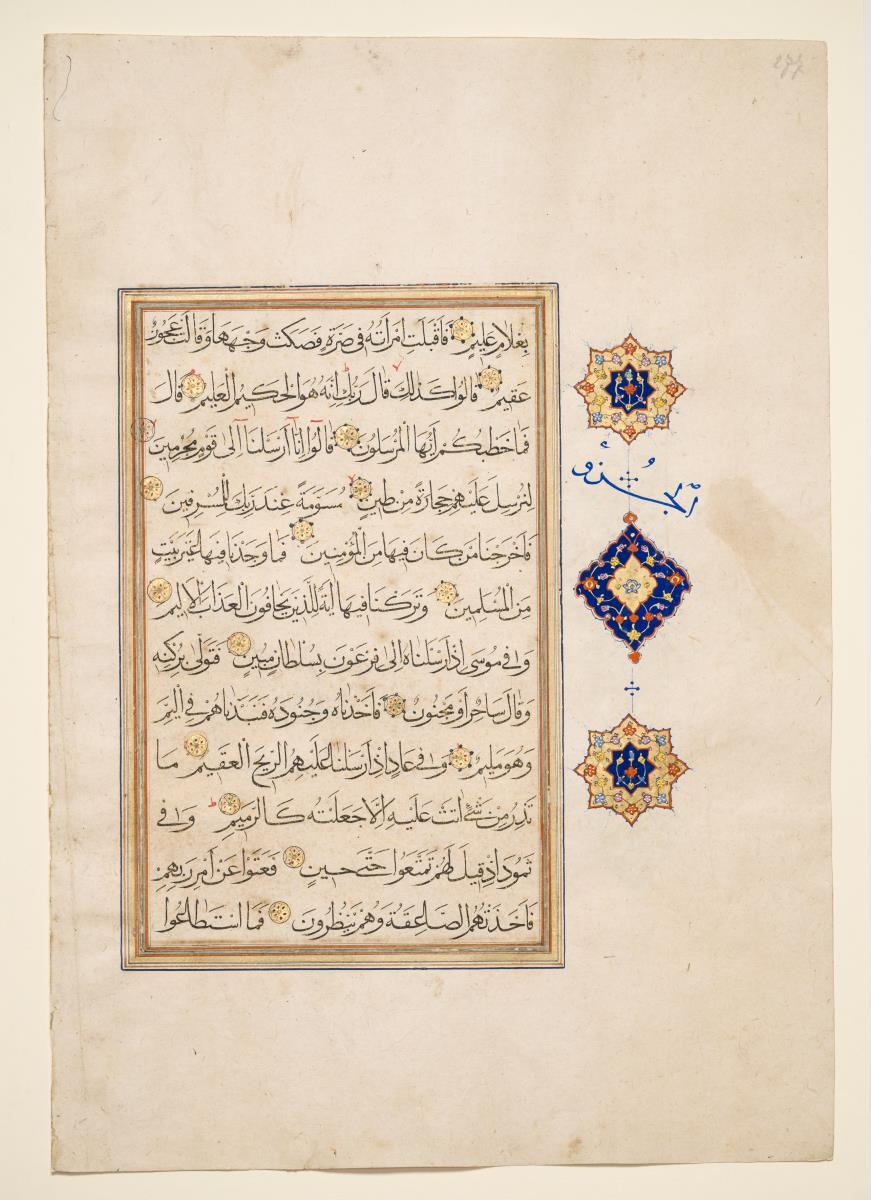 بِغُلَامٍ عَلِيمٍ فَأَقْبَلَتِ امْرَأَتُهُ فِي صَرَّةٍ فَصَكَّتْ وَجْهَهَا وَقَالَتْ عَجُوزٌ
عَقِيمٌ قَالُوا كَذَٰلِكِ قَالَ رَبُّكِ إِنَّهُ هُوَ الْحَكِيمُ الْعَلِيمُ قَالَ
فَمَا خَطْبُكُمْ أَيُّهَا الْمُرْسَلُونَ قَالُوا إِنَّا أُرْسِلْنَا إِلَىٰ قَوْمٍ مُجْرِمِينَ
لِنُرْسِلَ عَلَيْهِمْ حِجَارَةً مِنْ طِينٍ مُسَوَّمَةً عِنْدَ رَبِّكَ لِلْمُسْرِفِينَ
فَأَخْرَجْنَا مَنْ كَانَ فِيهَا مِنَ الْمُؤْمِنِينَ فَمَا وَجَدْنَا فِيهَا غَيْرَ بَيْتٍ
مِنَ الْمُسْلِمِينَ وَتَرَكْنَا فِيهَا آيَةً لِلَّذِينَ يَخَافُونَ الْعَذَابَ الْأَلِيمَ
وَفِي مُوسَىٰ إِذْ أَرْسَلْنَاهُ إِلَىٰ فِرْعَوْنَ بِسُلْطَانٍ مُبِينٍ فَتَوَلَّىٰ بِرُكْنِهِ
وَقَالَ سَاحِرٌ أَوْ مَجْنُونٌ فَأَخَذْنَاهُ وَجُنُودَهُ فَنَبَذْنَاهُمْ فِي الْيَمِّ
وَهُوَ مُلِيمٌ وَفِي عَادٍ إِذْ أَرْسَلْنَا عَلَيْهِمُ الرِّيحَ الْعَقِيمَ مَا
تَذَرُ مِنْ شَيْءٍ أَتَتْ عَلَيْهِ إِلَّا جَعَلَتْهُ كَالرَّمِيمِ وَفِي
ثَمُودَ إِذْ قِيلَ لَهُمْ تَمَتَّعُوا حَتَّىٰ حِينٍ فَعَتَوْا عَنْ أَمْرِ رَبِّهِمْ
فَأَخَذَتْهُمُ الصَّاعِقَةُ وَهُمْ يَنْظُرُونَ فَمَا اسْتَطَاعُوا
الْجُزْؤُ